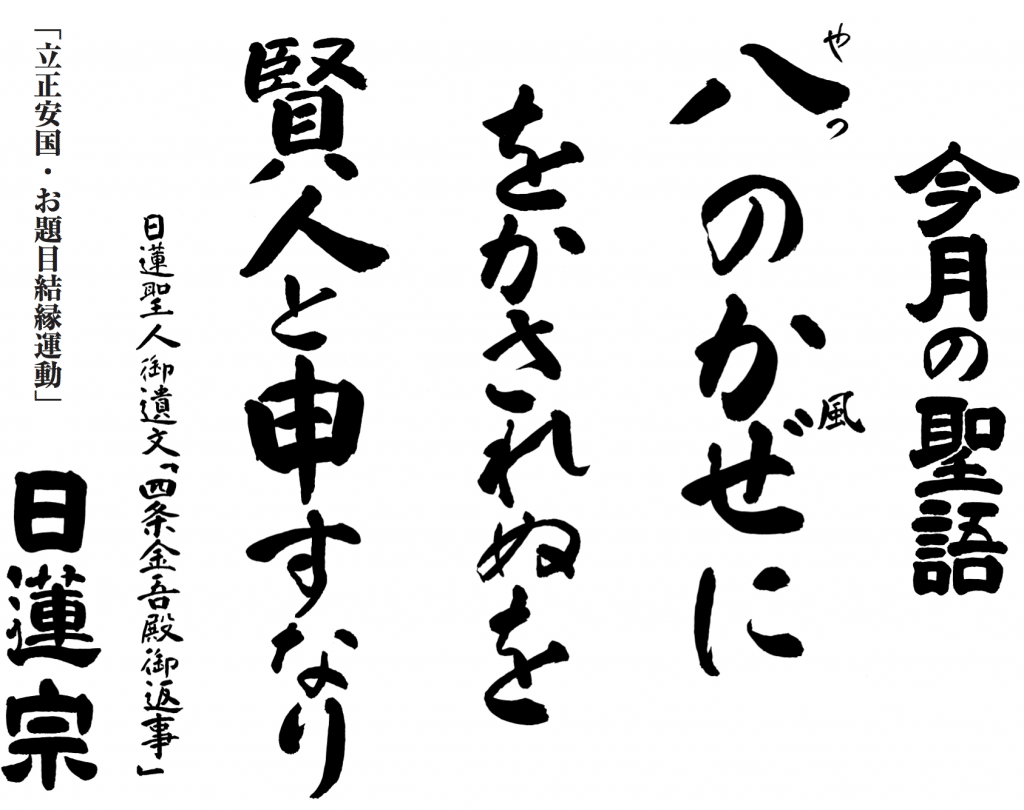 今月の聖語
八のかぜに
やっ
風
をかされぬを
賢人と申すなり
日蓮聖人御遺文「四条金吾殿御返事」
「立正安国・お題目結縁運動」
日蓮宗